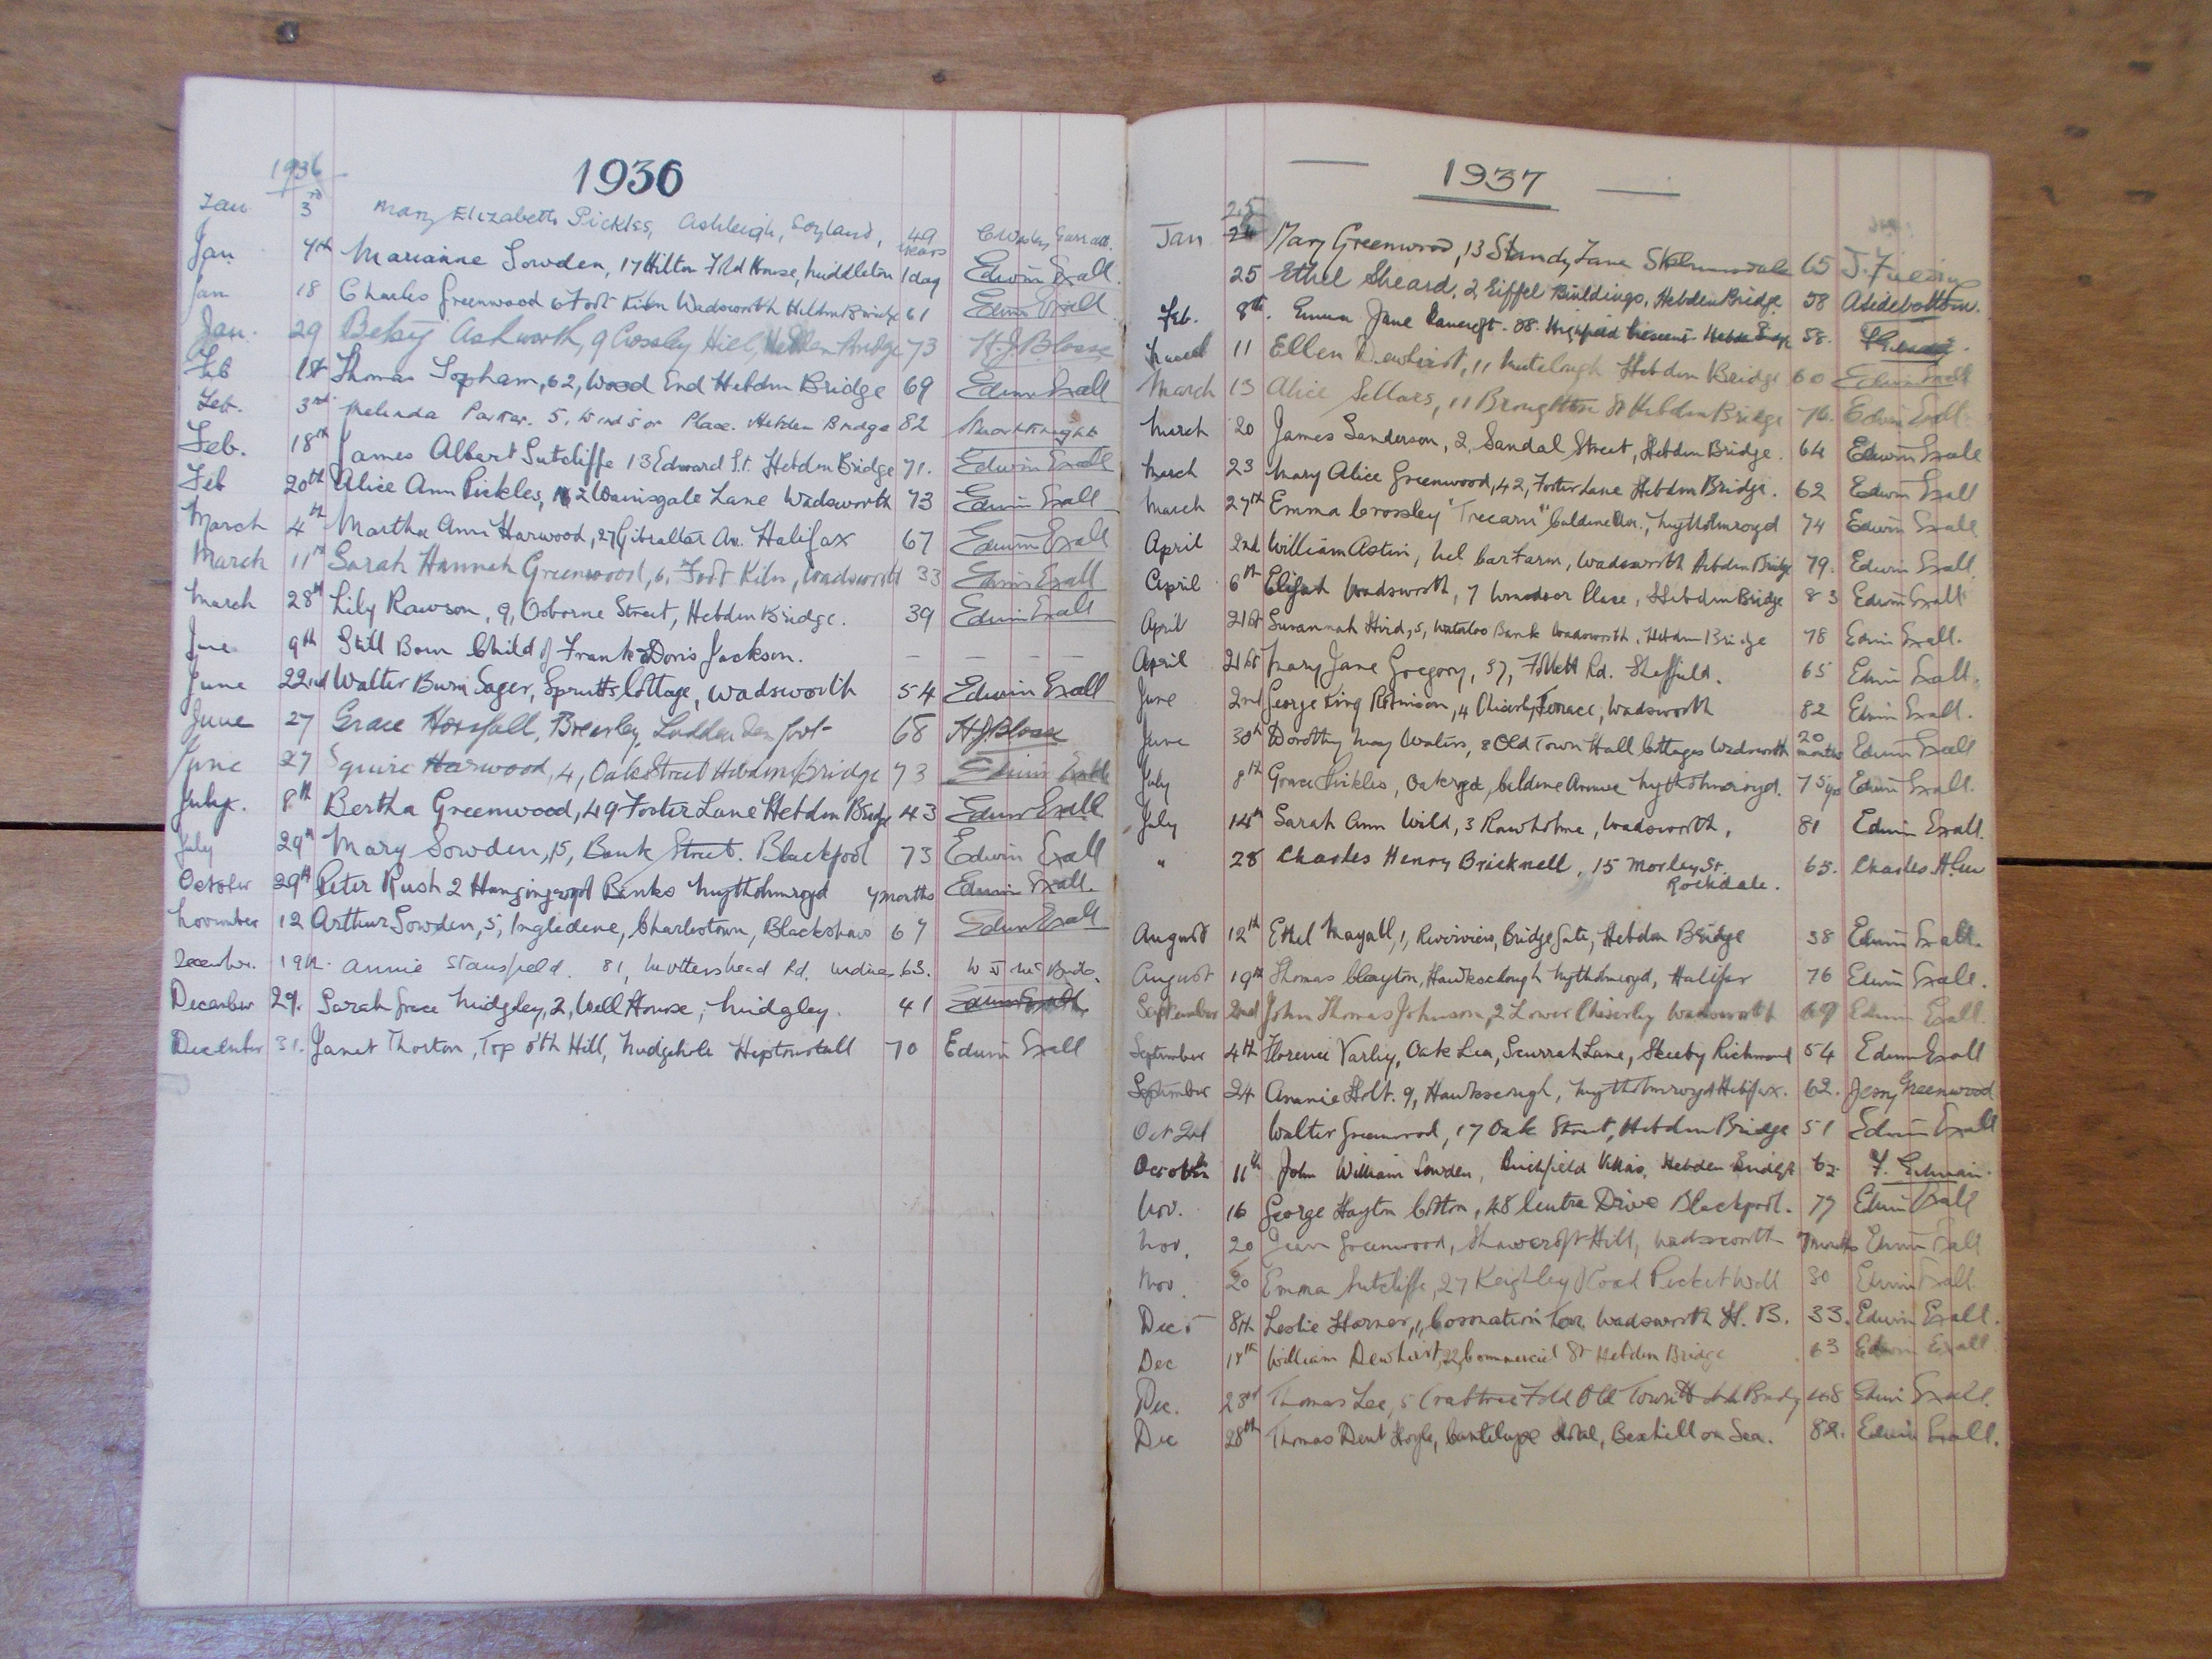 1936
1936
Jan 3rd Mary Elizabeth Pickles, Ashleigh, Soyland, 49 years
Jan 7th Marianne Sowden, 17 Hilton Fold House, Middleton 1 day Edwin Exall
Jan 18 Charles Greenwood 6 Foot Kiln Wadsworth Hebden Bridge 61 Edwin Exall
Jan. 29 Betsy Ashworth, 9 Crossley Hill, Hebden Bridge 73 H J Bloase
Feb 1st Thomas Topham, 62, Wood End Hebden Bridge 69 Edwin Exall
Feb. 3rd Melinda Parker. 5, Windsor Place. Hebden Bridge 82
Feb. 18th James Albert Sutcliffe 13 Edward St. Hebden Bridge 71. Edwin Exall
Feb 20th Alice Ann Pickles, 2 Wainsgate Lane Wadsworth 73 Edwin Exall
March 4th Martha Ann Harwood, 27 Gibraltar Av. Halifax 67 Edwin Exall
March 11th Sarah Hannah Greenwood, 6, Foot Kiln, Wadsworth 33 Edwin Exall
March 28th Lily Rawson, 9, Osborne Street, Hebden Bridge. 39 Edwin Exall
June 9th Still Born Child of Frank & Doris Jackson. — — —
June 22nd Walter Burn Sager, Sprutts Cottage, Wadsworth 54 Edwin Exall
June 27 Grace Horsfall, Brearley, Luddenden foot 68 H J Bloase
June 27 Squire Harwood, 4, Oak Street Hebden Bridge 73 Edwin Exall
July. 8th Bertha Greenwood, 49 Foster Lane Hebden Bridge 43 Edwin Exall
July 29th Mary Sowden, 15, Bank Street. Blackpool 73 Edwin Exall
October 29th Peter Rush 2 Hangingroyd Banks Mytholmroyd months Edwin Exall
November 12 Arthur Sowden, 5, Ingledene, Charlestown, Blackshaw 67 Edwin Exall
December. 19th. Annie Stansfield. 81, Mottershead Rd. 63.
December 29. Sarah Grace Midgley, 2, Well House, Midgley. 41 Edwin Exall
December 31. Janet Thorton, Top o'th Hill, Midgehole Heptonstall 70 Edwin Exall
1937
25
Jan 24 Mary Greenwood, 13 Standy Lane Skelmersdale 65
25 Ethel Sheard, 2, Eiffel Buildings, Hebden Bridge. 58 A Sidebottom.
Feb. 8th. Emma Jane Bancroft. 88. Highfield Crescent Hebden Bridge 58.
March 11 Ellen Dewhirst, 11 Hebden Bridge 60 Edwin Exall
March 13 Alice Sellars, 11 Broughton St Hebden Bridge 76. Edwin Exall
March 20 James Sanderson, 2, Sandal Street, Hebden Bridge. 64 Edwin Exall
March 23 Mary Alice Greenwood, 42, Foster Lane Hebden Bridge. 62 Edwin Exall
March 27th Emma Crossley "Trecarn" Caldene Av., Mytholmroyd 74 Edwin Exall
April 2nd William Astin, Farm, Wadsworth Hebden Bridge 79. Edwin Exall
April 6th Elijah Wadsworth, 7 Windsor Place, Hebden Bridge 83 Edwin Exall
April 21st Susannah Hird, 5, Waterloo Bank Wadsworth. Hebden Bridge 78 Edwin Exall.
April 21st Mary Jane Gregory, 37, Follett Rd. Sheffield. 65 Edwin Exall.
June 2nd George King Robinson, 4 Chiserley Terrace, Wadsworth 82 Edwin Exall.
June 30th Dorothy May Waters, 8 Old Town Hall Cottages Wadsworth 20 months Edwin Exall
July 8th Grace Pickles, Oakroyd, Caldene Avenue Mytholmroyd. 75 yrs Edwin Exall.
July 14th Sarah Ann Wild, 3 Rawholme, Wadsworth, 81 Edwin Exall.
" 28 Charles Henry Bricknell, 15 Morley St. 65.
Rochdale.
August 12th Ethel Mayall, 1, Riverview, Bridge Gate, Hebden Bridge 38 Edwin Exall.
August 19th Thomas Clayton, Hawksclough Mytholmroyd, Halifax 76 Edwin Exall.
September 2nd John Thomas Johnson, 2 Lower Chiserley Wadsworth 69 Edwin Exall.
September 4th Florence Varley, Oak Lea, Scurrah Lane, Skeeby Richmond 54 Edwin Exall
September 24 Annie Holt. 9, Hawksclough, Mytholmroyd Halifax. 62. Jessy Greenwood
Oct 2nd Walter Greenwood, 17 Oak Street, Hebden Bridge 51 Edwin Exall
October 11th John William Sowden, Birchfield Villas, Hebden Bridge 62
Nov. 16 George Hayton Cotton, 48 Centre Drive Blackpool. 77 Edwin Exall
Nov. 20 Jean Greenwood, Shawcroft Hill, Wadsworth 7 months Edwin Exall
Nov. 20 Emma Sutcliffe, 27 Keighley Road Pecket Well 30 Edwin Exall.
Dec 8th Leslie Horner, 1, Coronation Terr. Wadsworth H. B. 33. Edwin Exall.
Dec 18th William Dewhirst, 22, Commercial St Hebden Bridge 63 Edwin Exall
Dec. 23rd Thomas Lee, 5 Crabtree Fold Old Town Hebden Bridge 68 Edwin Exall.
Dec 28th Thomas Dent Hoyle, Cantelupe Hotel, Bexhill on Sea. 82. Edwin Exall.